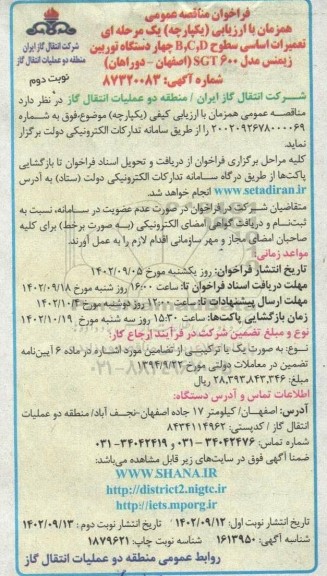 فراخوان مناقصه عمومی
همزمان با ارزیابی (یکپارچه) یک مرحله ای
تعمیرات اساسی سطوح B,C,D چهار دستگاه توربین
زیمنس مدل SGT ۶۰۰ (اصفهان - دوراهان)
شماره آگهی: ۸۷۳۲۰۰۸۳
شرکت انتقال گاز ایران
منطقه دو عملیات انتقال گاز
نوبت دوم
شرکت انتقال گاز ایران / منطقه دو عملیات انتقال گاز در نظر دارد
مناقصه عمومی همزمان با ارزیابی کیفی (یکپارچه) موضوع،فوق به شماره
۲۰۰۲۰۹۲۶۷۸۰۰۰۰۶۹ را از طریق سامانه تدارکات الکترونیکی دولت برگزار
نماید.
کلیه مراحل برگزاری فراخوان از دریافت و تحویل اسناد فراخوان تا بازگشایی
پاکت‌ها از طریق درگاه سامانه تدارکات الکترونیکی دولت (ستاد) به آدرس
www.setadiran.ir انجام خواهد شد.
متقاضیان شرکت در فراخوان در صورت عدم عضویت در سامانه، نسبت به
ثبت‌نام و دریافت گواهی امضای الکترونیکی (به صورت برخط) برای کلیه
صاحبان امضای مجاز و مهر سازمانی اقدام لازم را به عمل آورند.
مواعد زمانی:
تاریخ انتشار فراخوان: روز یکشنبه مورخ ۱۴۰۲/۰۹/۰۵
مهلت دریافت اسناد فراخوان تا: ساعت ۱۶:۰۰ روز شنبه مورخ ۱۴۰۲/۰۹/۱۸
مهلت ارسال پیشنهادات تا: ساعت ۱۲:۰۰ روز دوشنبه مورخ ۱۴۰۲/۱۰/۴
زمان بازگشایی پاکت‌ها: ساعت ۱۵:۳۰ روز سه شنبه مورخ ۱۴۰۲/۱۰/۱۹
نوع و مبلغ تضمین شرکت در فرآیند ارجاع کار:
نوع: به صورت یک یا ترکیبی از تضامین مورد اشاره در ماده ۶ آیین‌نامه
تضمین در معاملات دولتی مورخ ۱۳۹۴/۹/۲۲
مبلغ: ۲۸,۳۹۳,۸۴۳,۳۴۶ ریال
اطلاعات تماس و آدرس دستگاه:
آدرس: اصفهان/ کیلومتر ۱۷ جاده اصفهان-نجف‌آباد/ منطقه دو عملیات
انتقال گاز / کدپستی: ۸۴۳۴۱۱۴۹۶۲
شماره تماس: ۳۴۰۴۲۴۷۶-۰۳۱ و ۳۴۰۴۲۴۱۹-۰۳۱
ضمنا آگهی فوق در سایت‌های زیر قابل مشاهده می‌باشد:
WWW.SHANA.IR
http://district2.nigtc.ir
http://iets.mporg.ir
تاریخ انتشار نوبت اول: ۱۴۰۲/۰۹/۱۲ تاریخ انتشار نوبت دوم: ۱۴۰۲/۰۹/۱۳
شناسه آگهی: ۱۶۱۳۹۵۰ شناسه نوبت چاپ: ۱۸۷۹۶۲۱
روابط عمومی منطقه دو عملیات انتقال گاز